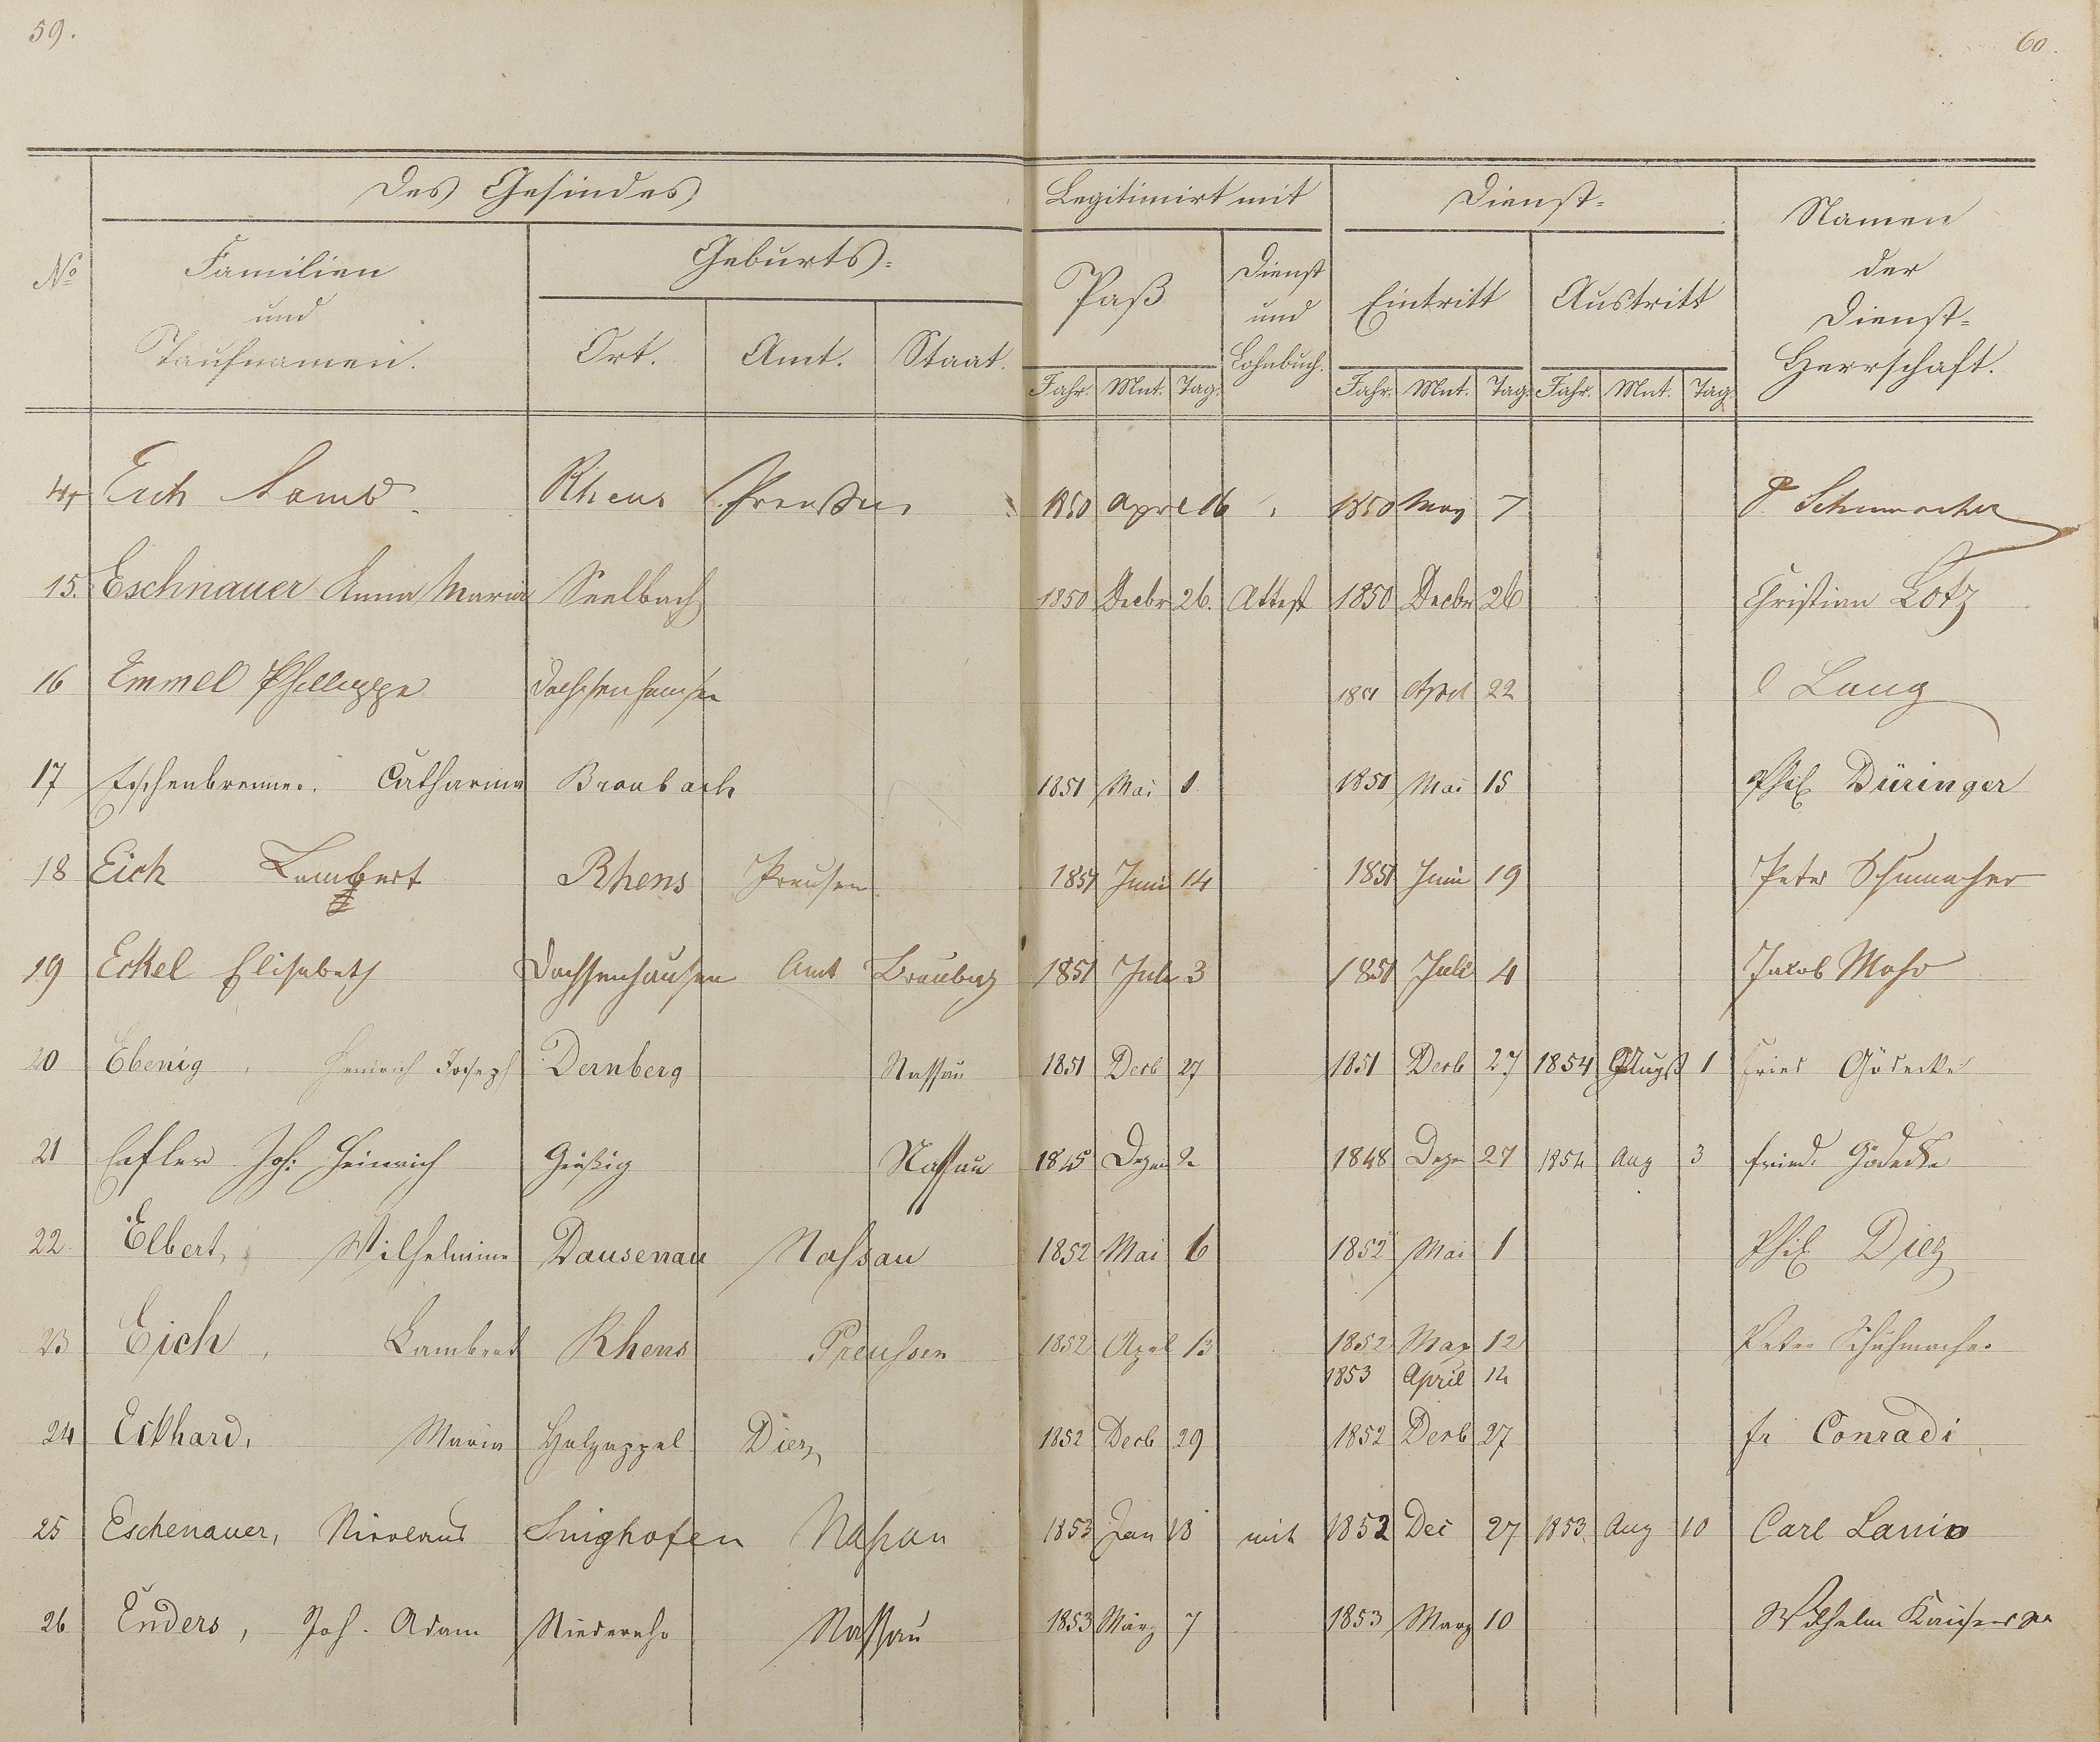 59.
60.
Des Gesindes
Legitimirt mit
Dienst=
Namen der Dienst= Herrschaft.
No
Familien und Taufnamen.
Geburts=
Paß
Dienst und Lohnbuch.
Eintritt
Austritt
Ort. Amt. Staat.
Jahr. Mnt. Tag. Jahr. Mnt. Tag. Jahr. Mnt. Tag.
Eich Lamb. Rhens Preußen 1850 April 16 1850 May 7 P Schumacher
15. Eschnauer Anna Maria Seelbach 1850 Decbr 26. Attest 1850 Decbr 26 Christian Lotz
16 Emmel Philippe Dachsenhausen 1851 April 22 Lang
17 Eschenbrenner. Catharina Braubach 1851 Mai 1 1851 Mai 15 Phil Düringer
18 Eich Lambert Rhens Preusen 1851 Juni 14 1851 Juni 19 Peter Schumacher
19 Eckel Elisabeth Dachsenhausen Amt Braubach 1851 Juli 3 1851 Juli 4 Jacob Mohr
20 Ebenig, Heinrich Joseph Dernberg Nassau 1851 Decb 27 1851 Decb 27 1854 Augst 1 Fried Gödecke
21 Joh: Heinrich Nassau 1845 Dezem 2 1848 Deze 27 1854 Aug 3 Fried. Gödecke
22. Elbert, Wilhelmine Dausenau Nassau 1852 Mai 6 1852 Mai 1 Phil Diez
23 Eich, Lambert Rhens Preussen 1852 Aprl 13 1852 May 12 Peter Schuhmacher
1853 April 14
24 Eckhard, Maria Holzappel Diez 1852 Decb 29 1852 Decb 27 Fr Conradi
25 Eschenauer, Nicolaus Singhofen Nassau 1853 Jan 18 mit 1852 Dec 27 1853 Aug 10 Carl Lanio
26 Enders, Joh. Adam Nassau 1853 März 7 1853 März 10 Wilhelm Kaiser